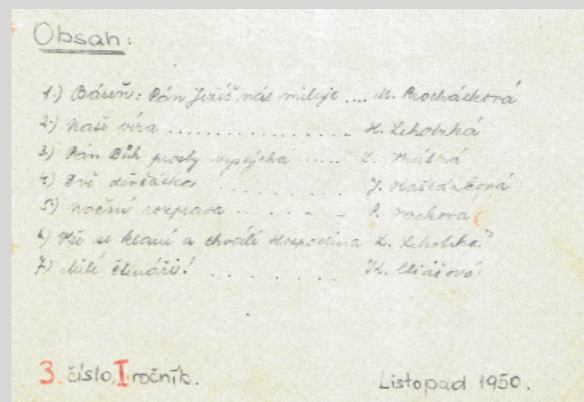 Obsah:
1.) Báseň: Pán Ježíš nás miluje .... M. Procházková
2.) Naše víra .............. H. Lehotská
3.) Pán Bůh prosby vyslýchá ..... L.
4.) Dvě děvčátka .......... J.
5.) Noční rozprava ........ P. Vacková
6.) Vše se klaní a chválí Hospodina L. Lehotská
7.) Milí čtenáři! .......... K. Eliášová
3. číslo, I. ročník.
Listopad 1950.